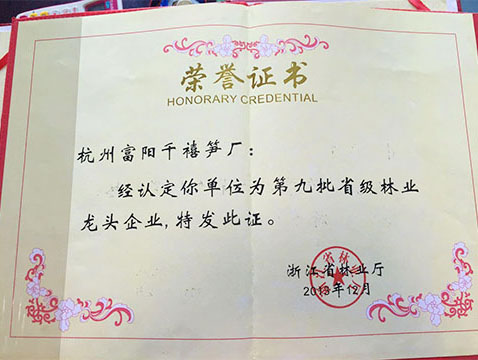 荣誉证书
HONORARY CREDENTIAL
杭州富阳千禧笋厂：
经认定你单位为第九批省级林业
龙头企业,特发此证。
浙江省林业厅
年12月